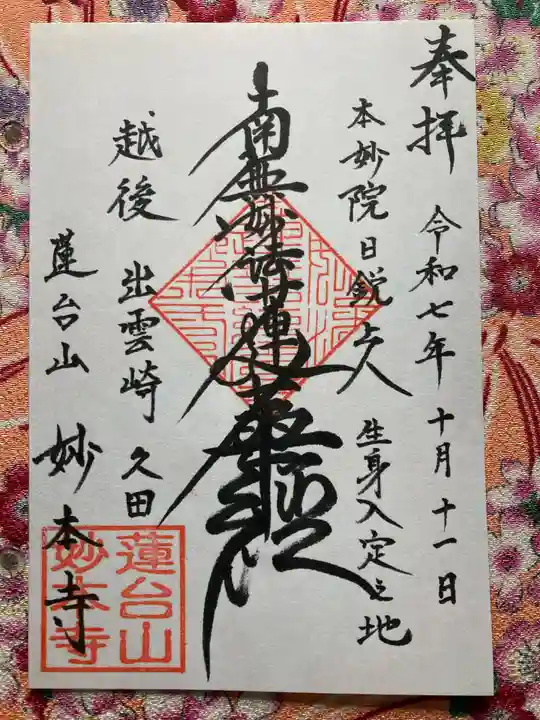 奉拝 令和七年十月十一日
本妙院日鋭上人 生身入定之地
南無妙法蓮華経
越後 出雲崎 久田
蓮台山 妙本寺
蓮台山
妙本寺